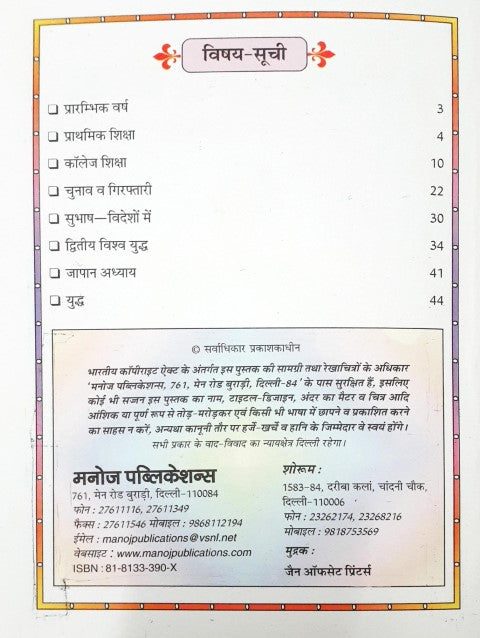 विषय-सूची
❑ प्रारम्भिक वर्ष 3
❑ प्राथमिक शिक्षा 4
❑ कॉलेज शिक्षा 10
❑ चुनाव व गिरफ्तारी 22
❑ सुभाष—विदेशों में 30
❑ द्वितीय विश्व युद्ध 34
❑ जापान अध्याय 41
❑ युद्ध 44
© सर्वाधिकार प्रकाशकाधीन
भारतीय कॉपीराइट ऐक्ट के अंतर्गत इस पुस्तक की सामग्री तथा रेखाचित्रों के अधिकार
'मनोज पब्लिकेशन्स, 761, मेन रोड बुराड़ी, दिल्ली-84' के पास सुरक्षित हैं, इसलिए
कोई भी सज्जन इस पुस्तक का नाम, टाइटल-डिजाइन, अंदर का मैटर व चित्र आदि
आंशिक या पूर्ण रूप से तोड़-मरोड़कर एवं किसी भी भाषा में छापने व प्रकाशित करने
का साहस न करें, अन्यथा कानूनी तौर पर हर्जे-खर्चे व हानि के जिम्मेदार वे स्वयं होंगे।
सभी प्रकार के वाद-विवाद का न्यायक्षेत्र दिल्ली रहेगा।
मनोज पब्लिकेशन्स
761, मेन रोड बुराड़ी, दिल्ली-110084
फोन : 27611116, 27611349
फैक्स : 27611546 मोबाइल : 9868112194
ईमेल : manojpublications@vsnl.net
वेबसाइट : www.manojpublications.com
ISBN : 81-8133-390-X
शोरूम :
1583-84, दरीबा कलां, चांदनी चौक,
दिल्ली-110006
फोन : 23262174, 23268216
मोबाइल : 9818753569
मुद्रक :
जैन ऑफसेट प्रिंटर्स